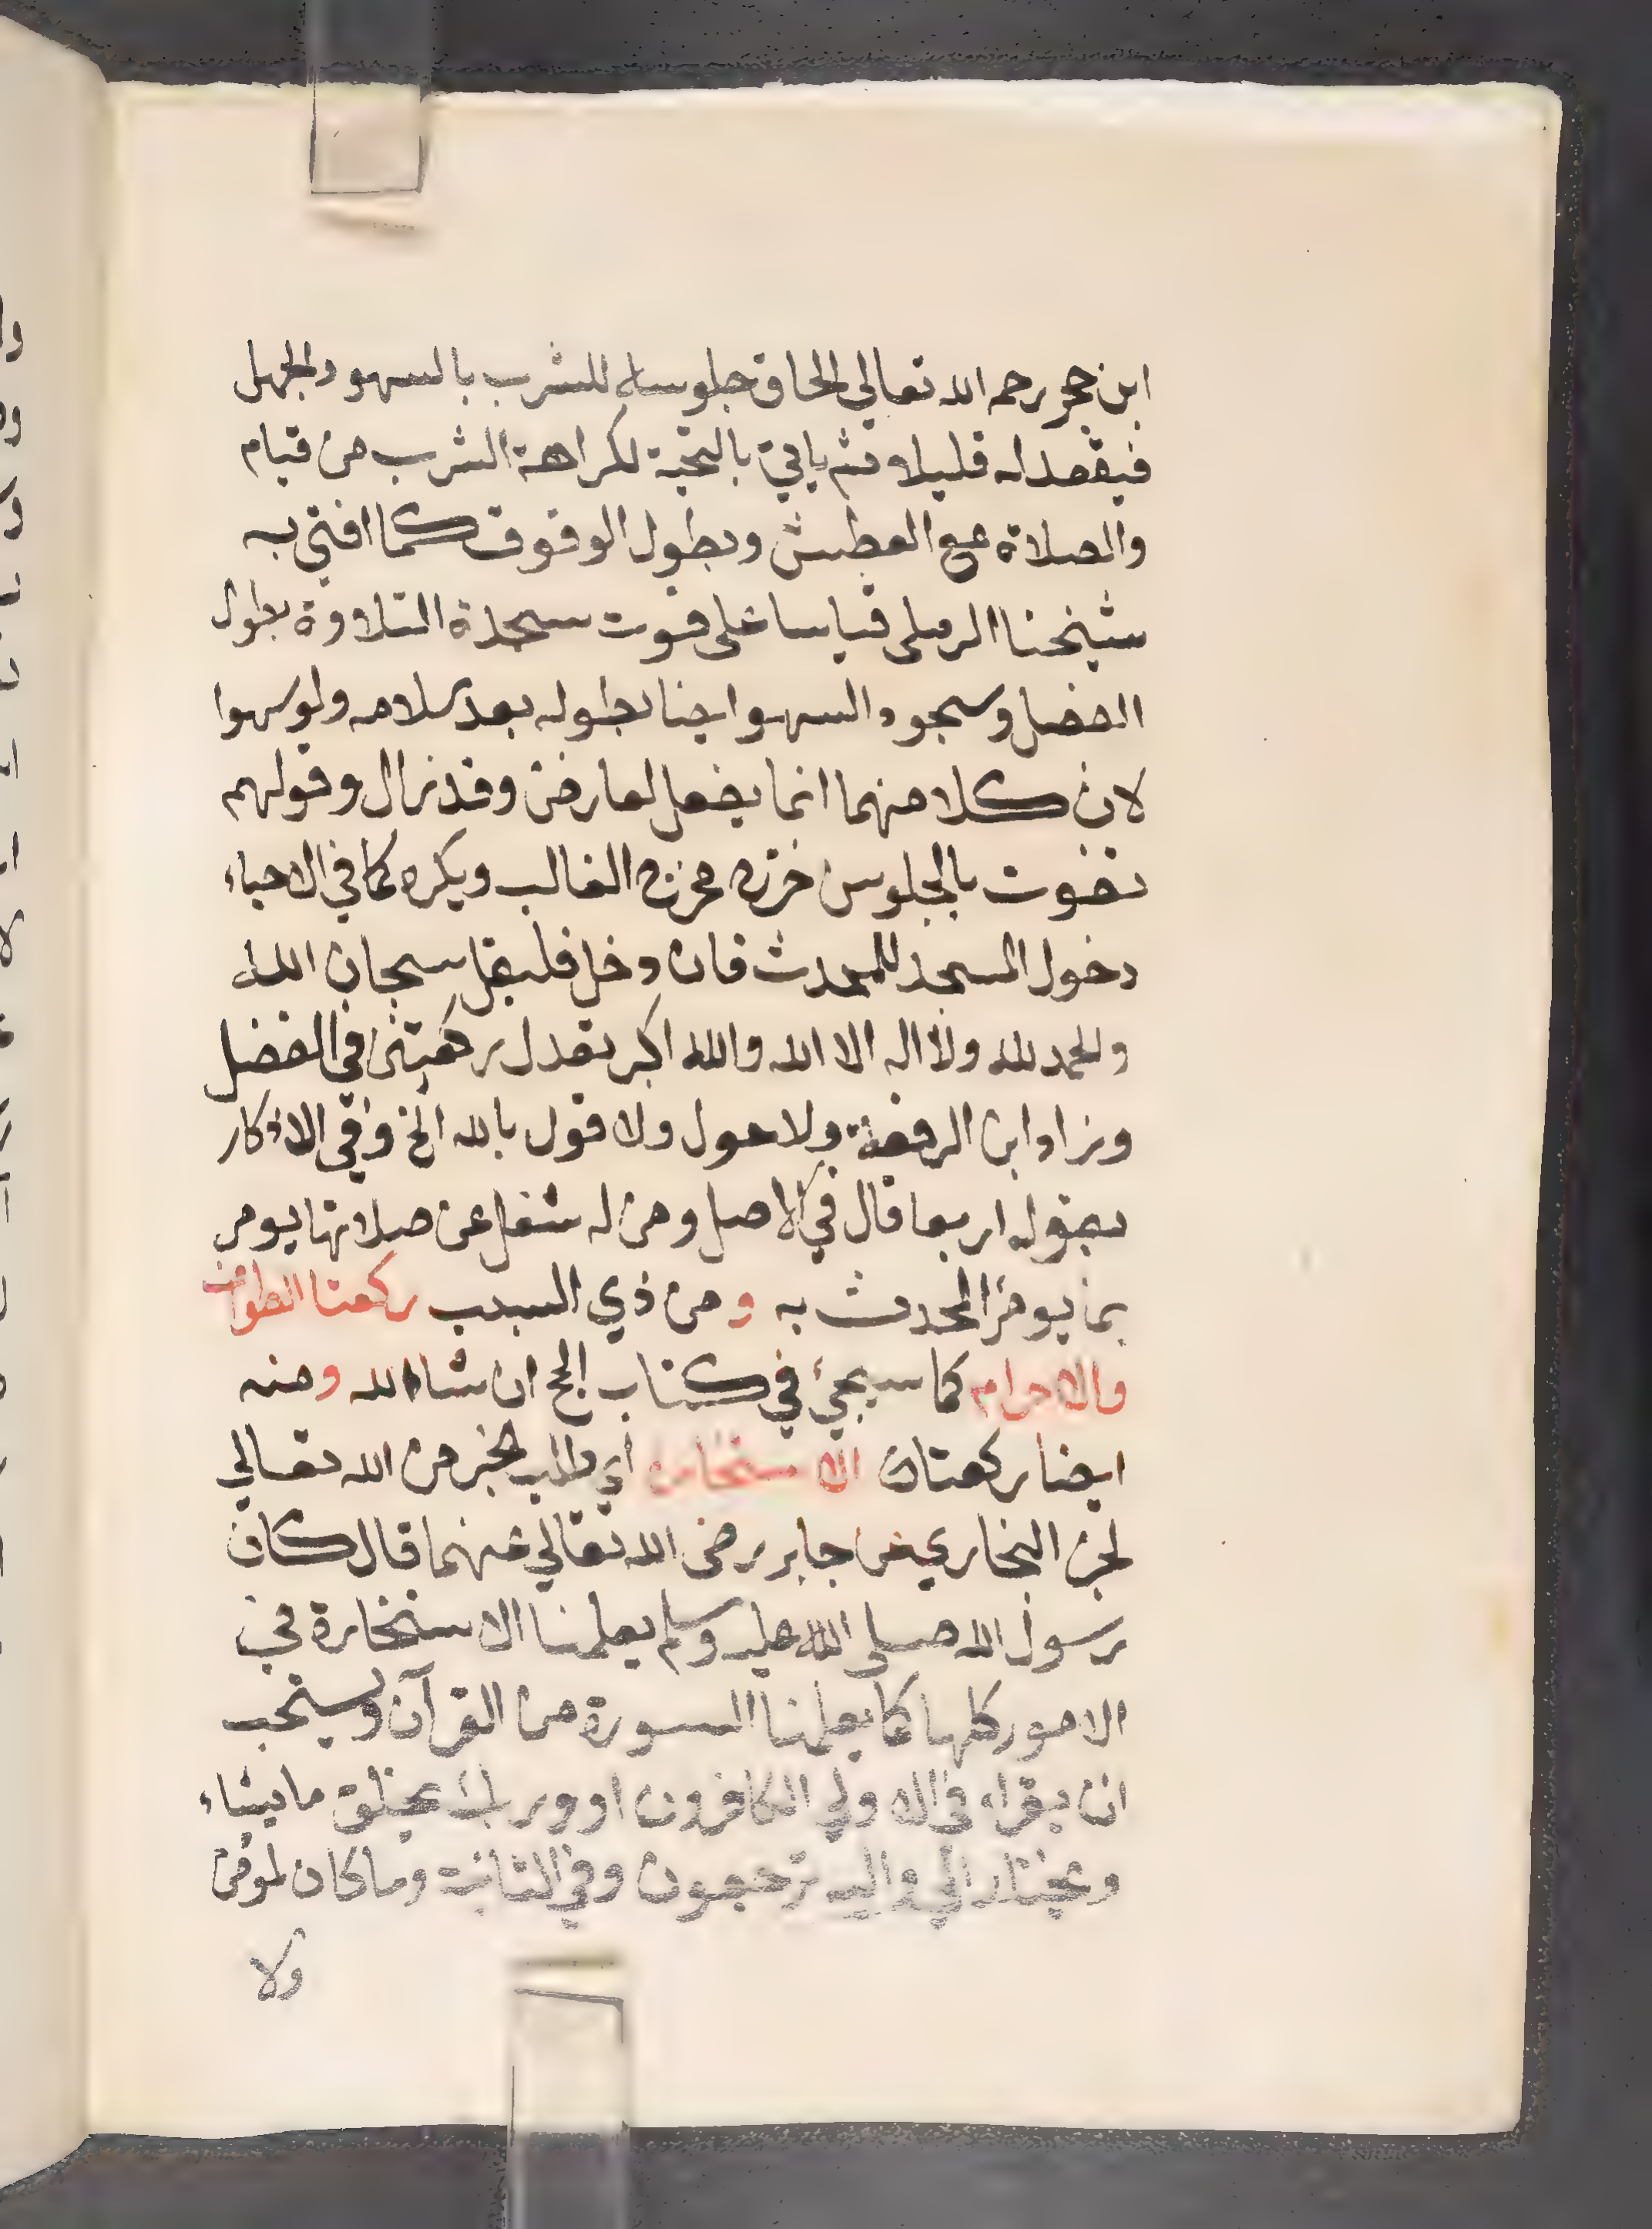 ابن حجر رحمه الله تعالي الحاق جلوسه للشرب بالسهو والجهل
فيقعد له قليلا ثم ياتي بالتحية لكراهة الشرب من قيام
والصلاة مع العطش وبطول الوقوف كما افتي به
شيخنا الرملي قياسا علي فوت سجدة التلاوة بطول
الفصل وسجود السهو ايضا بطوله بعد سلامه ولو سهوا
لان كلا منهما انما يفعل لعارض وقد زال وقولهم
تفوت بالجلوس خرج مخرج الغالب ويكره كما في الاحياء
دخول المسجد للمحدث فان دخل فليقل سبحان الله
والحمد لله ولا اله الا الله والله اكبر تعدل ركعتين في الفضل
وزاد ابن الرفعة ولا حول ولا قول بالله الخ وفي الاذكار
يقوله اربعا قال في الاصل ومن له شغل عن صلاتها يومر
بما يومر المحدث به ومن ذي السبب ركعتا الطواف
والاحرام كما سيجئ في كتاب الحج ان شا الله ومنه
ايضا ركعتان الاستخارة أي طلب الخير من الله تعالي
لخبر البخاري عن جابر رضي الله تعالي عنهما قال كان
رسول الله صلي الله عليه وسلم يعلمنا الاستخارة في
الامور كلها كما يعلمنا السورة من القرآن ويستحب
ان يقراء في الاولي الكافرون او وربك يخلق ما يشاء
ويختار الي واليه ترجعون وفي الثانية وما كان لمومن
ولا